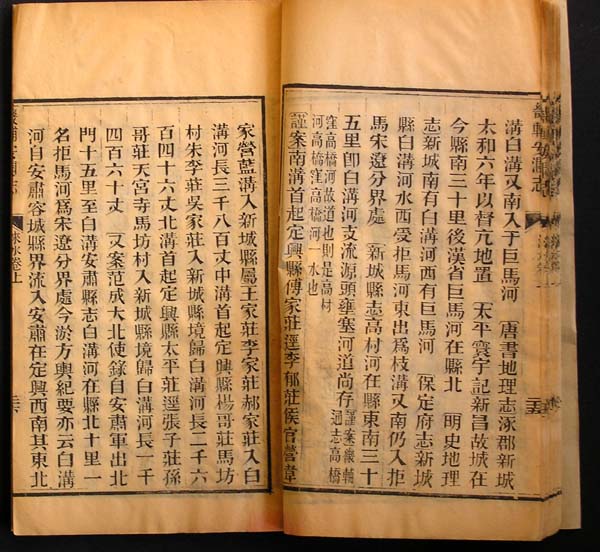 溝白溝又南入于巨馬河　唐書地理志涿郡新城
太和六年以督亢地置　太平寰宇記新昌故城在
今縣南三十里後漢省巨馬河在縣北　明史地理
志新城南有白溝河西有巨馬河　保定府志新城
縣白溝河水西受拒馬河東出為枝溝又南仍入拒
馬宋遼分界處　新城縣志高村河在縣東南三十
五里卽白溝河支流源頭壅塞河道尚存謹案畿輔通志高橋
窪高橋河故道也則是高村
河高橋窪高橋河一水也
謹案南溝首起定興縣傅家莊逕李郁莊侯官營韓
家營藍溝入新城縣屬王家莊李家莊郝家莊入白
溝河長三千八百丈中溝首起定興縣楊哥莊馬坊
村朱李莊吳家莊入新城縣境歸白溝河長二千六
百四十六丈北溝首起定興縣太平莊逕張子莊孫
哥莊天宮寺馬坊村入新城縣境歸白溝河長一千
四百六十丈　又案范成大北使錄自安肅軍出北
門十五里至白溝安肅縣志白溝河在縣北十里一
名拒馬河為宋遼分界處今淤方輿紀要亦云白溝
河自安肅容城縣界流入安肅在定興西南其東北